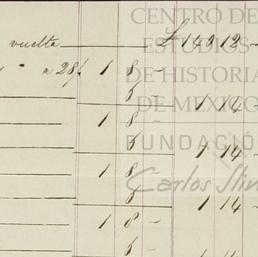 CENTRO DE
vuelta £ 149 12 -
ESTUDIOS
" a 28/ 1 8 -
DE HISTORIA
5
DE MÉXICO
1 14 -
1 8 -
FUNDACIÓN
5
1 14 -
1 8 -
Carlos Slim
5
1 14 -
1 8 -
5
1 14 -